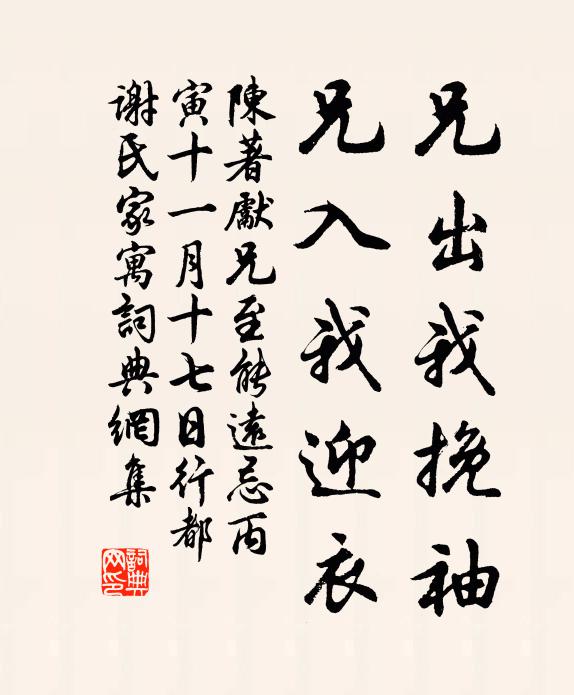 兄出我挽袖
兄入我迎衣
陳著獻兄至能遠忌丙
寅十一月十七日行都
謝氏家寓詞典網集
詞典网印